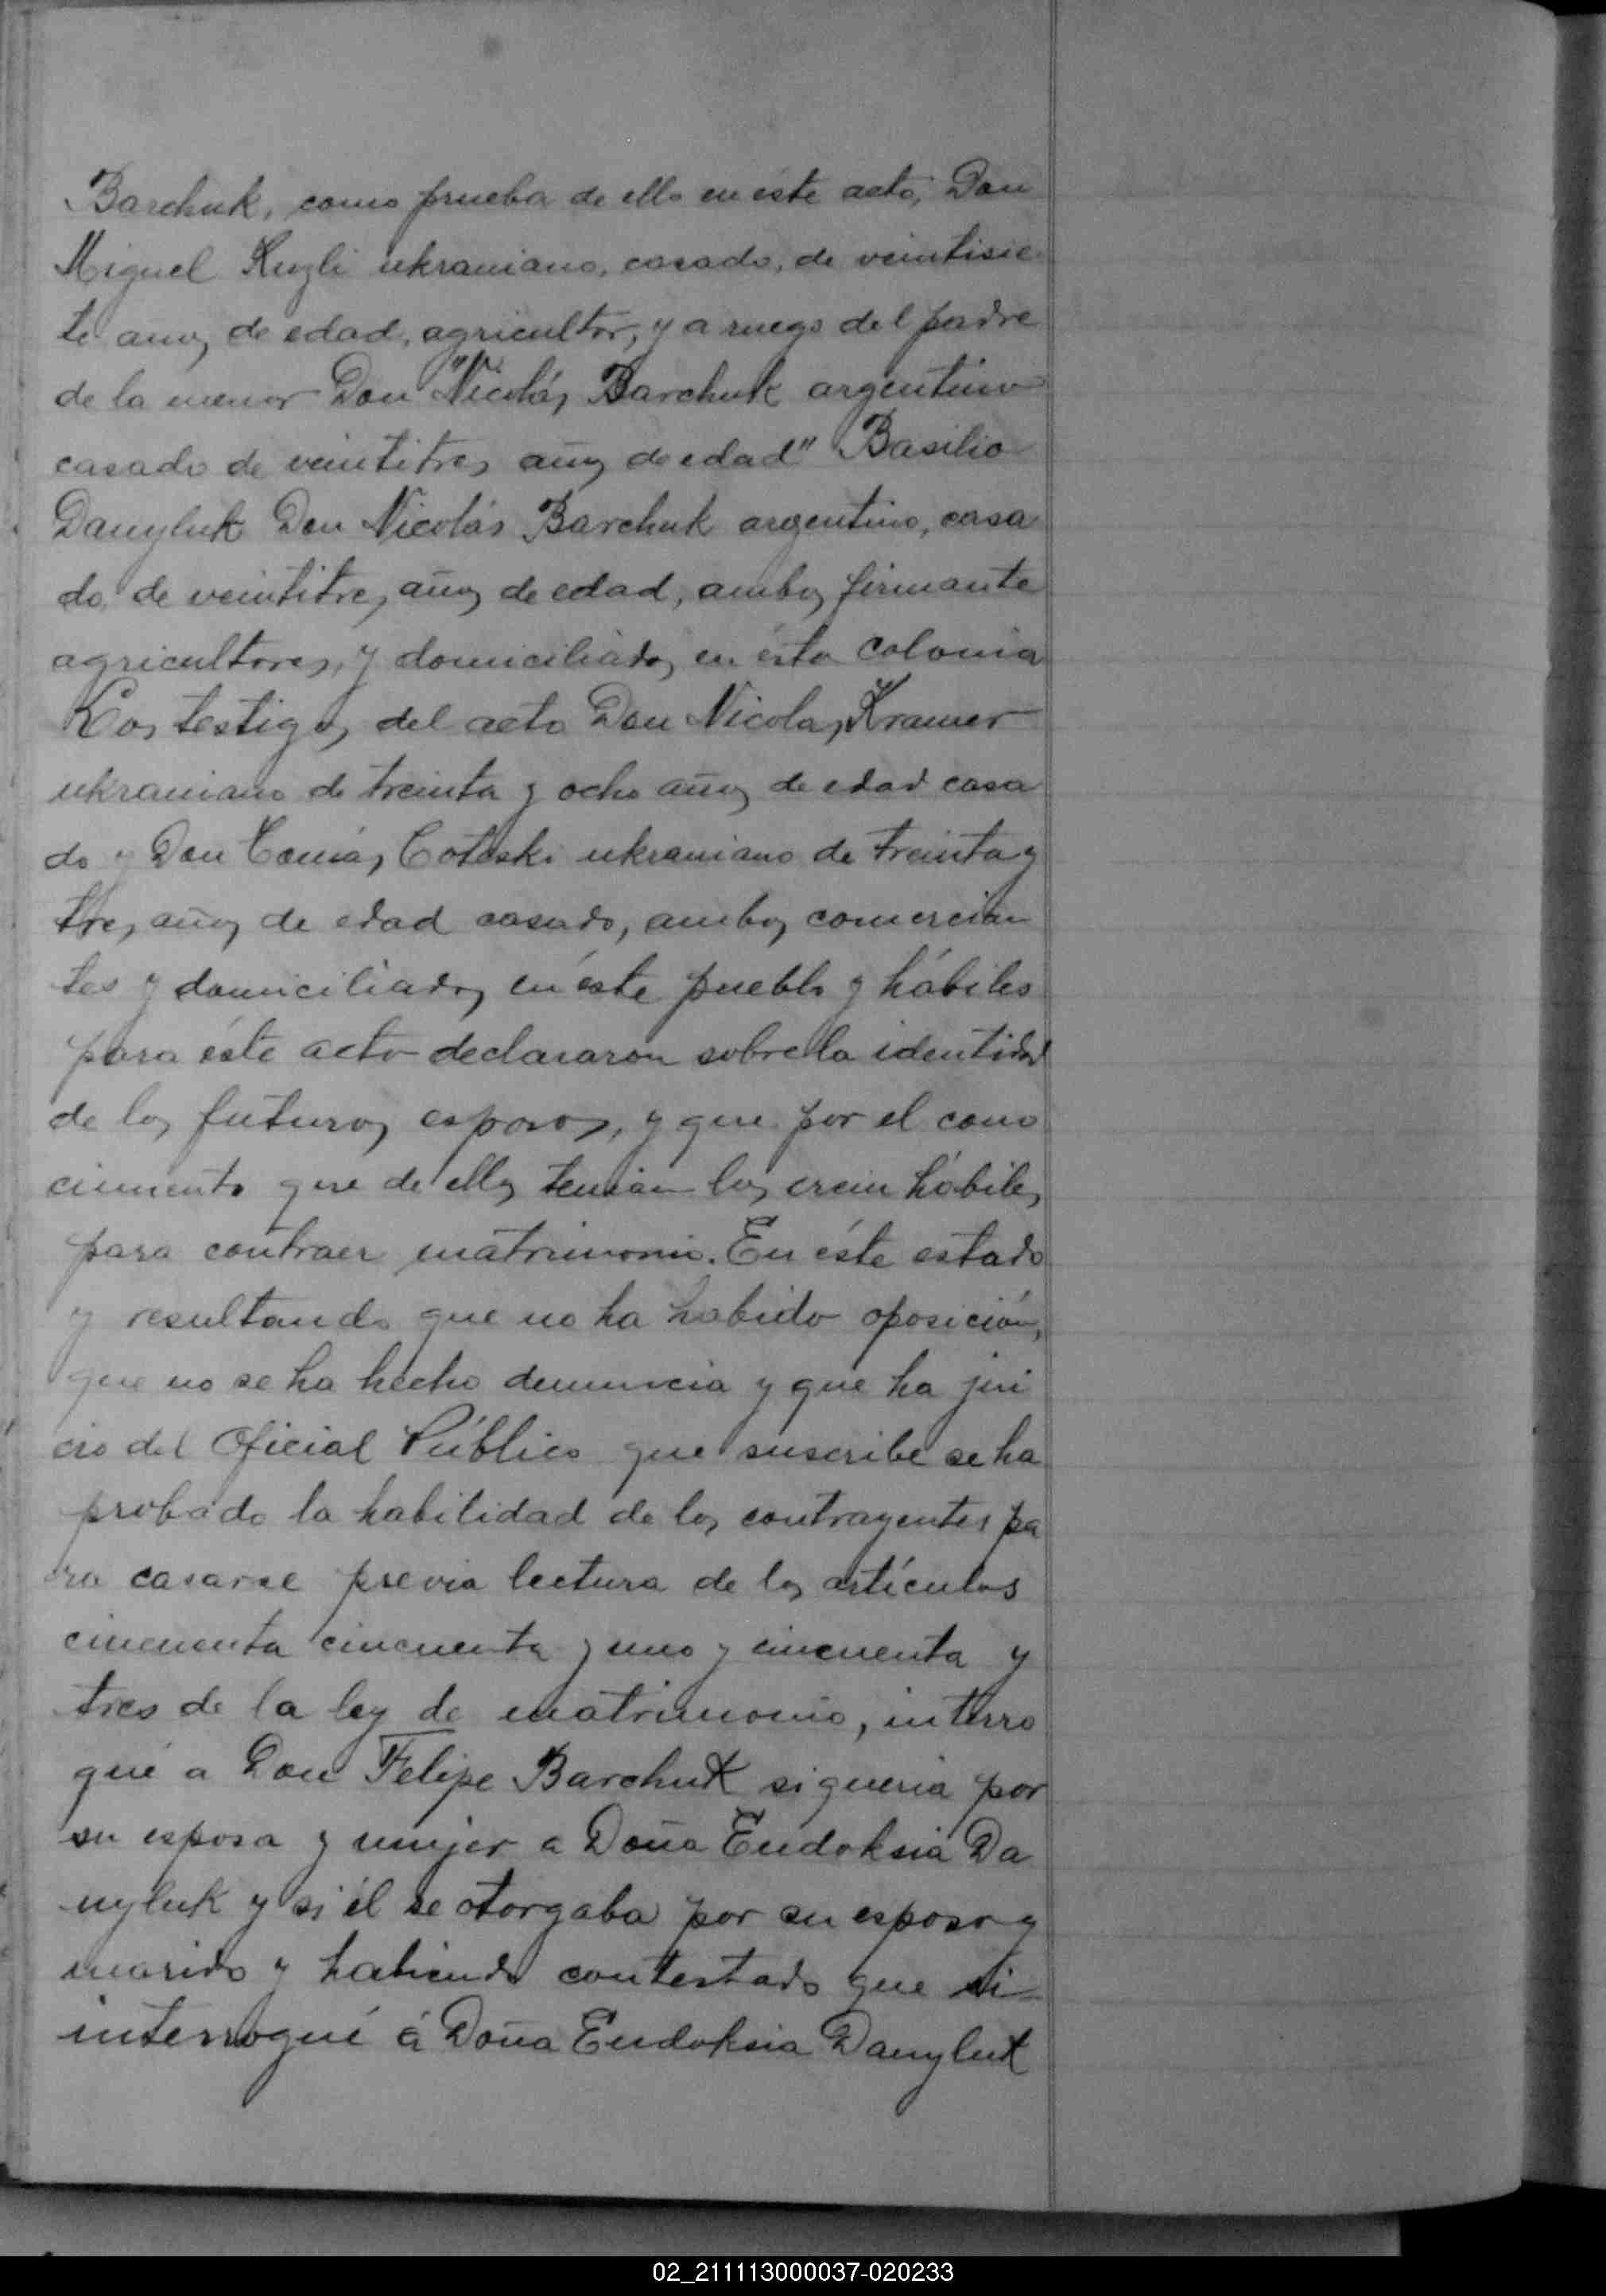 Barchuk, como prueba de ello en éste acto, Don
Miguel Kuzli ukraniano, casado, de veintisie
te años de edad, agricultor, y a ruego del padre
de la menor Don "Nicolás Barchuk argentino
casado de veintitres años de edad" Basilio
Danyluk Don Nicolás Barchuk argentino, casa
do, de veintitres años de edad, ambos firmante
agricultores, y domiciliados en ésta colonia
Los testigos del acto Don Nicolas Kramer
ukraniano de treinta y ocho años de edad casa
do y Don Tomás Cotoski ukraniano de treinta y
tres años de edad casado, ambos comercian
tes y domiciliados en éste pueblo y hábiles
para éste acto declararon sobre la identidad
de los futuros esposos, y que por el cono
cimiento que de ellos tenian los crein hábiles
para contraer matrimonio. En éste estado
y resultando que no ha habido oposición,
que no se ha hecho denuncia y que ha jui
cio del Oficial Público que suscribe se ha
probado la habilidad de los contrayentes pa
ra casarse previa lectura de los artículos
cincuenta cincuenta y uno y cincuenta y
tres de la ley de matrimonio, interro
gué a Don Felipe Barchuk si queria por
su esposa y mujer a Doña Eudoksia Da
nyluk y si él se otorgaba por su esposo y
marido y habiendo contestado que si
interrogué á Doña Eudoksia Danyluk
02_211113000037-020233